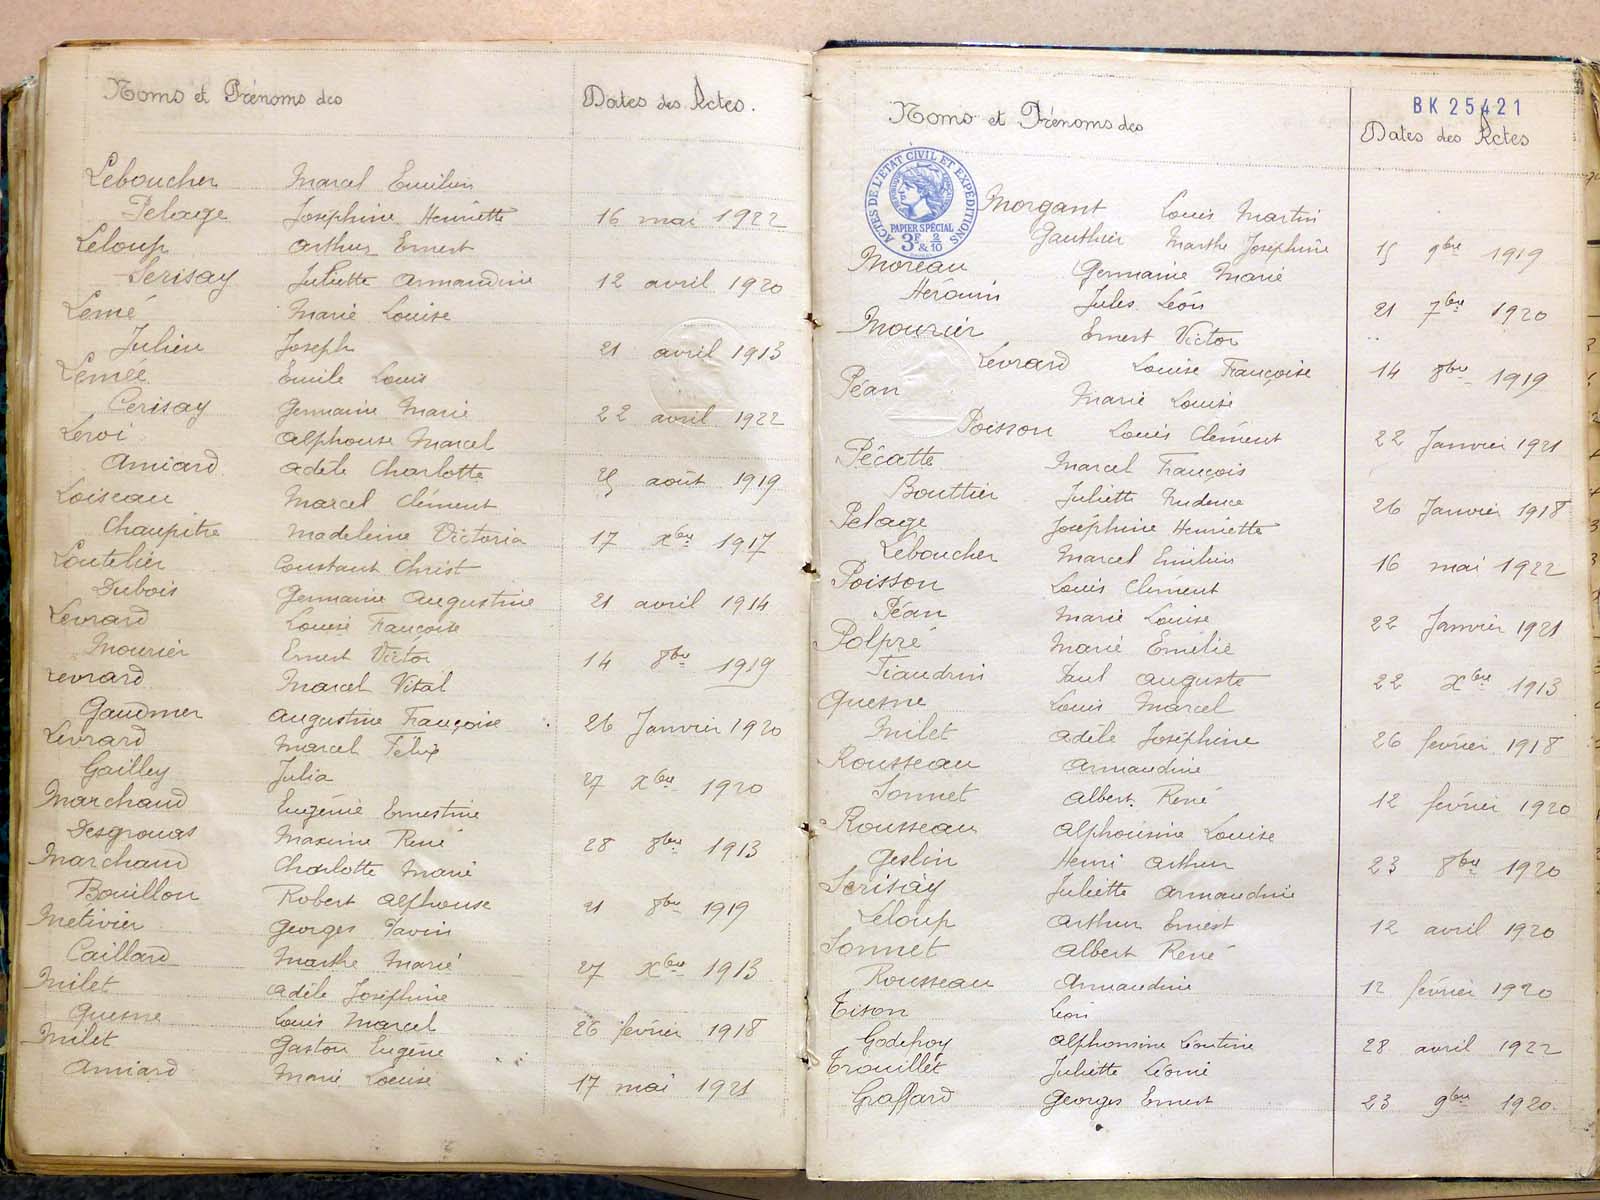 Noms et Prénoms des Dates des Actes.
Leboucher Marcel Emilien
Pelage Joséphine Henriette 16 mai 1922
Leloup Arthur Ernest
Serisay Juliette Armandine 12 avril 1920
Lemé Marie Louise
Julien Joseph 21 avril 1913
Lemée Emile Louis
Cerisay Germaine Marie 22 avril 1922
Leroi Alphonse Marcel
Amiard Adèle Charlotte 25 août 1919
Loiseau Marcel Clément
Chaupitre Madeleine Victoria 17 Xbre 1917
Loutelier Constant Christ
Dubois Germaine Augustine 21 avril 1914
Levrard Louise Françoise
Mourier Ernest Victor 14 8bre 1919
Levrard Marcel Vital
Gaudmer Augustine Françoise 26 Janvier 1920
Levrard Marcel Félix
Gailley Julia 27 Xbre 1920
Marchand Eugénie Ernestine
Desgrouas Maxime René 28 8bre 1913
Marchand Charlotte Marie
Bouillon Robert Alphonse 21 8bre 1919
Métivier Georges Pavin
Caillard Marthe Marie 27 Xbre 1913
Milet Adèle Joséphine
Quesne Louis Marcel 26 février 1918
Milet Gaston Eugène
Amiard Marie Louise 17 mai 1921
BK 25421
Noms et Prénoms des Dates des Actes
ACTES DE L'ETAT CIVIL ET EXPÉDITIONS
PAPIER SPÉCIAL
3F & 2/10
Morgant Louis Martin
Gauthier Marthe Joséphine 15 9bre 1919
Moreau Germaine Marie
Hérouin Jules Léon 21 7bre 1920
Mourier Ernest Victor
Levrard Louise Françoise 14 8bre 1919
Péan Marie Louise
Poisson Louis Clément 22 Janvier 1921
Pécatte Marcel François
Bouttier Juliette Prudence 26 Janvier 1918
Pelage Joséphine Henriette
Leboucher Marcel Emilien 16 mai 1922
Poisson Louis Clément
Péan Marie Louise 22 Janvier 1921
Polpré Marie Emilie
Tiaudrin Paul Auguste 22 Xbre 1913
Quesne Louis Marcel
Milet Adèle Joséphine 26 février 1918
Rousseau Armandine
Sonnet Albert René 12 février 1920
Rousseau Alphonsine Louise
Geslin Henri Arthur 23 8bre 1920
Serisay Juliette Armandine
Leloup Arthur Ernest 12 avril 1920
Sonnet Albert René
Rousseau Armandine 12 février 1920
Tison Léon
Godefroy Alphonsine Léontine 28 avril 1922
Trouillet Juliette Léonie
Graffard Georges Ernest 23 9bre 1920.